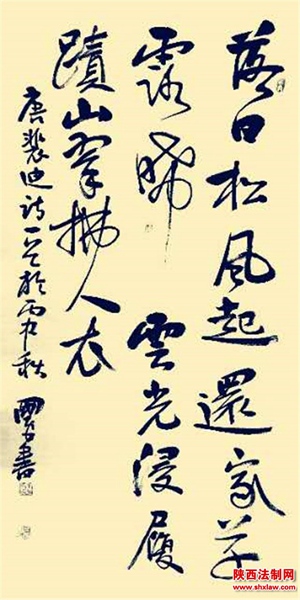 落日松风起還家草
露晞雲光浸履
蹟山翠拂人衣
唐裴迪诗一首於丙申秋
書
陕西法制网
www.shxlaw.com